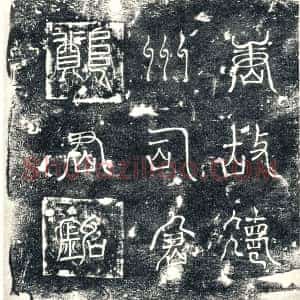 唐故德
州司倉
君銘